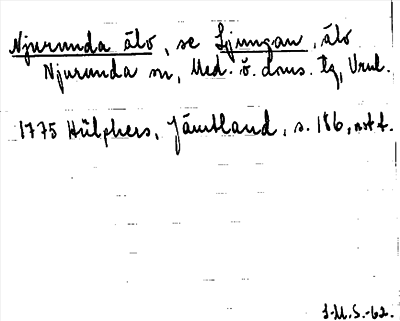 Njurunda älv, se Ljungan, älv
Njurunda sn, Med. ö. doms. tg, Vnl.
1775 Hülphers, Jämtland, s. 186, not t.
J.M.S.-62.